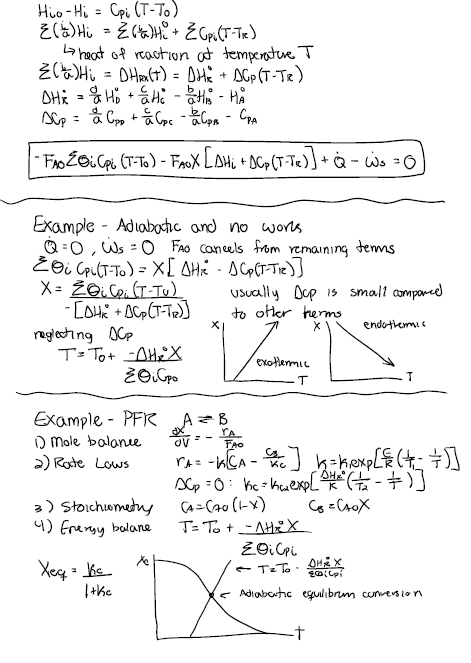 Hi₀ - Hi = Cpi (T-T₀)
Σ(b/a)Hi = Σ(b/a)Hi° + ΣCpi(T-TR)
↳ heat of reaction at temperature T
Σ(b/a)Hi = ΔHRX(T) = ΔHR° + ΔCp(T-TR)
ΔHR° = d/a HD° + c/a HC° - b/a HB° - HA°
ΔCp = d/a CPD + c/a CPC - b/a CPB - CPA
- FA0 ΣΘi Cpi (T-T0) - FA0X [ΔHi + ΔCp(T-TR)] + Q̇ - Ẇs = 0
Example - Adiabatic and no work
Q̇ = 0 , Ẇs = 0 FA0 cancels from remaining terms
ΣΘi Cpi(T-T0) = X[ΔHR° - ΔCp(T-TR)]
X = ΣΘi Cpi (T-T0) / -[ΔHR° + ΔCp(T-TR)]
usually ΔCp is small compared
to other terms
neglecting ΔCp
T = T0 + -ΔHR°X / ΣΘiCp0
X exothermic T
X endothermic T
Example - PFR A ⇌ B
1) Mole balance dX/dV = - rA/FA0
2) Rate Laws rA = -k[CA - CB/KC] k = k₁exp[E/R(1/T₁ - 1/T)]
ΔCp = 0 : KC = KC2 exp[ΔHR°/R (1/T2 - 1/T)]
3) Stoichiometry CA = CA0 (1-X) CB = CA0X
4) Energy balane T = T0 + -ΔHR°X / ΣΘi Cpi
Xeq = KC / 1+KC
Xe
← T = T0 - ΔHR°X / ΣΘiCpi
← Adiabatic equilibrum conversion
T